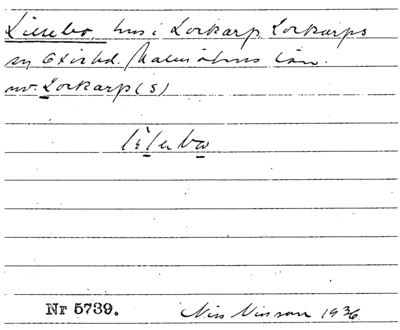 Lillebo, hus i Lockarp, Lockarps
sn Oxie hd. Malmöhus län.
uv. Lockarp (S)
lilebo
Nr 5739.
Nils Nilsson 1936.